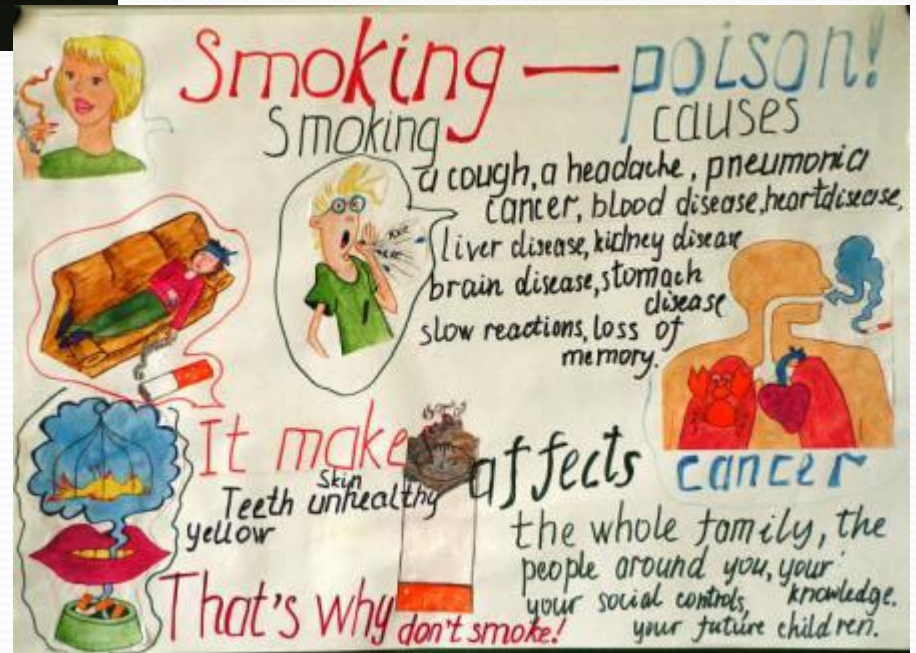 Smoking — poison!
Smoking causes
a cough, a headache, pneumonia
cancer, blood disease, heart disease,
liver disease, kidney disease
brain disease, stomach
disease
slow reactions, loss of
memory.
It make
Skin
Teeth unhealthy
yellow
affects
cancer
the whole family, the
people around you, your
your social controls, knowledge.
your future children.
That's why don't smoke!